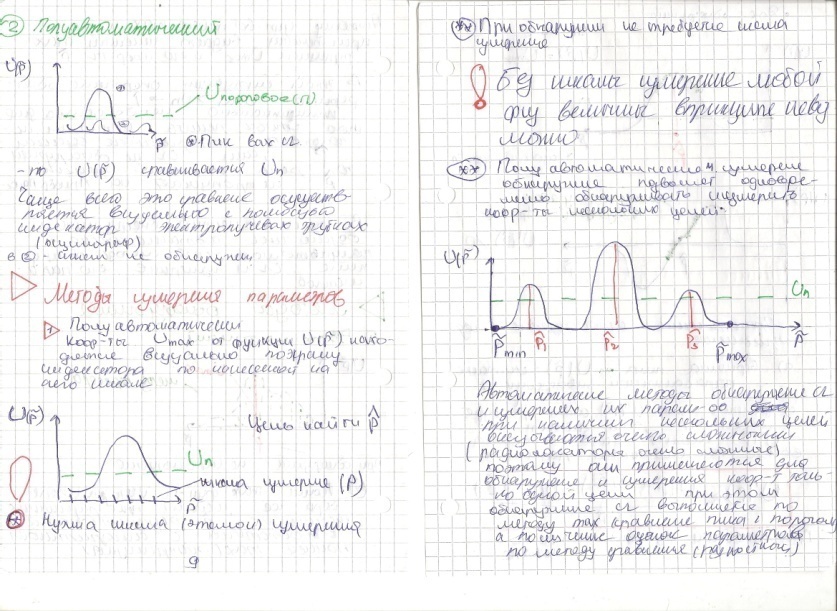 ② Полуавтоматический
U(p̃)
Uпороговое(п)
p̃
⊛ Пик вах сг.
- по U(p̃) сравнивается Uп
Чаще всего это сравнение осуществ-
ляется визуально с помощью
индекатор электролучевах трубках
(осцилограф)
в ② - не обнаружен
Методы измерения параметров
1 Полуавтоматически
Коор-ты Umax от функции U(p̃) нахо-
дятся визуально по экрану
индекатора по нанесенной на
него шкале
U(p̃)
Цель найти p̂
Uп
шкала измерение (p)
p̃
⊛ Нужна шкала (эталон) измерения
9
(**) При обнаружени не требуется шкала
измерение
Без шкалы измерение любой
физ величины впринципе невоз
можно
(**) Полу автоматическое измерение
обнаружние позволяет одновре-
менно обнаруживать и измерить
коор-ты нескольких целей.
U(p̃)
Uп
p̃min p̂1 p̂2 p̂3 p̃max p̃
Автоматические методы обнаружение сг
и измерения их парам-ов
при наличии нескольких целей
получаются очень сложными
(радиолокаторы очень сложные)
поэтому они применяются для
обнаружение и измерения коор-т толь-
ко одной цели при этом
обнаружние сг выполнение по
методу max сравнение пика с порогом
а получение оценок параметров
по методу уравнение (разностном)